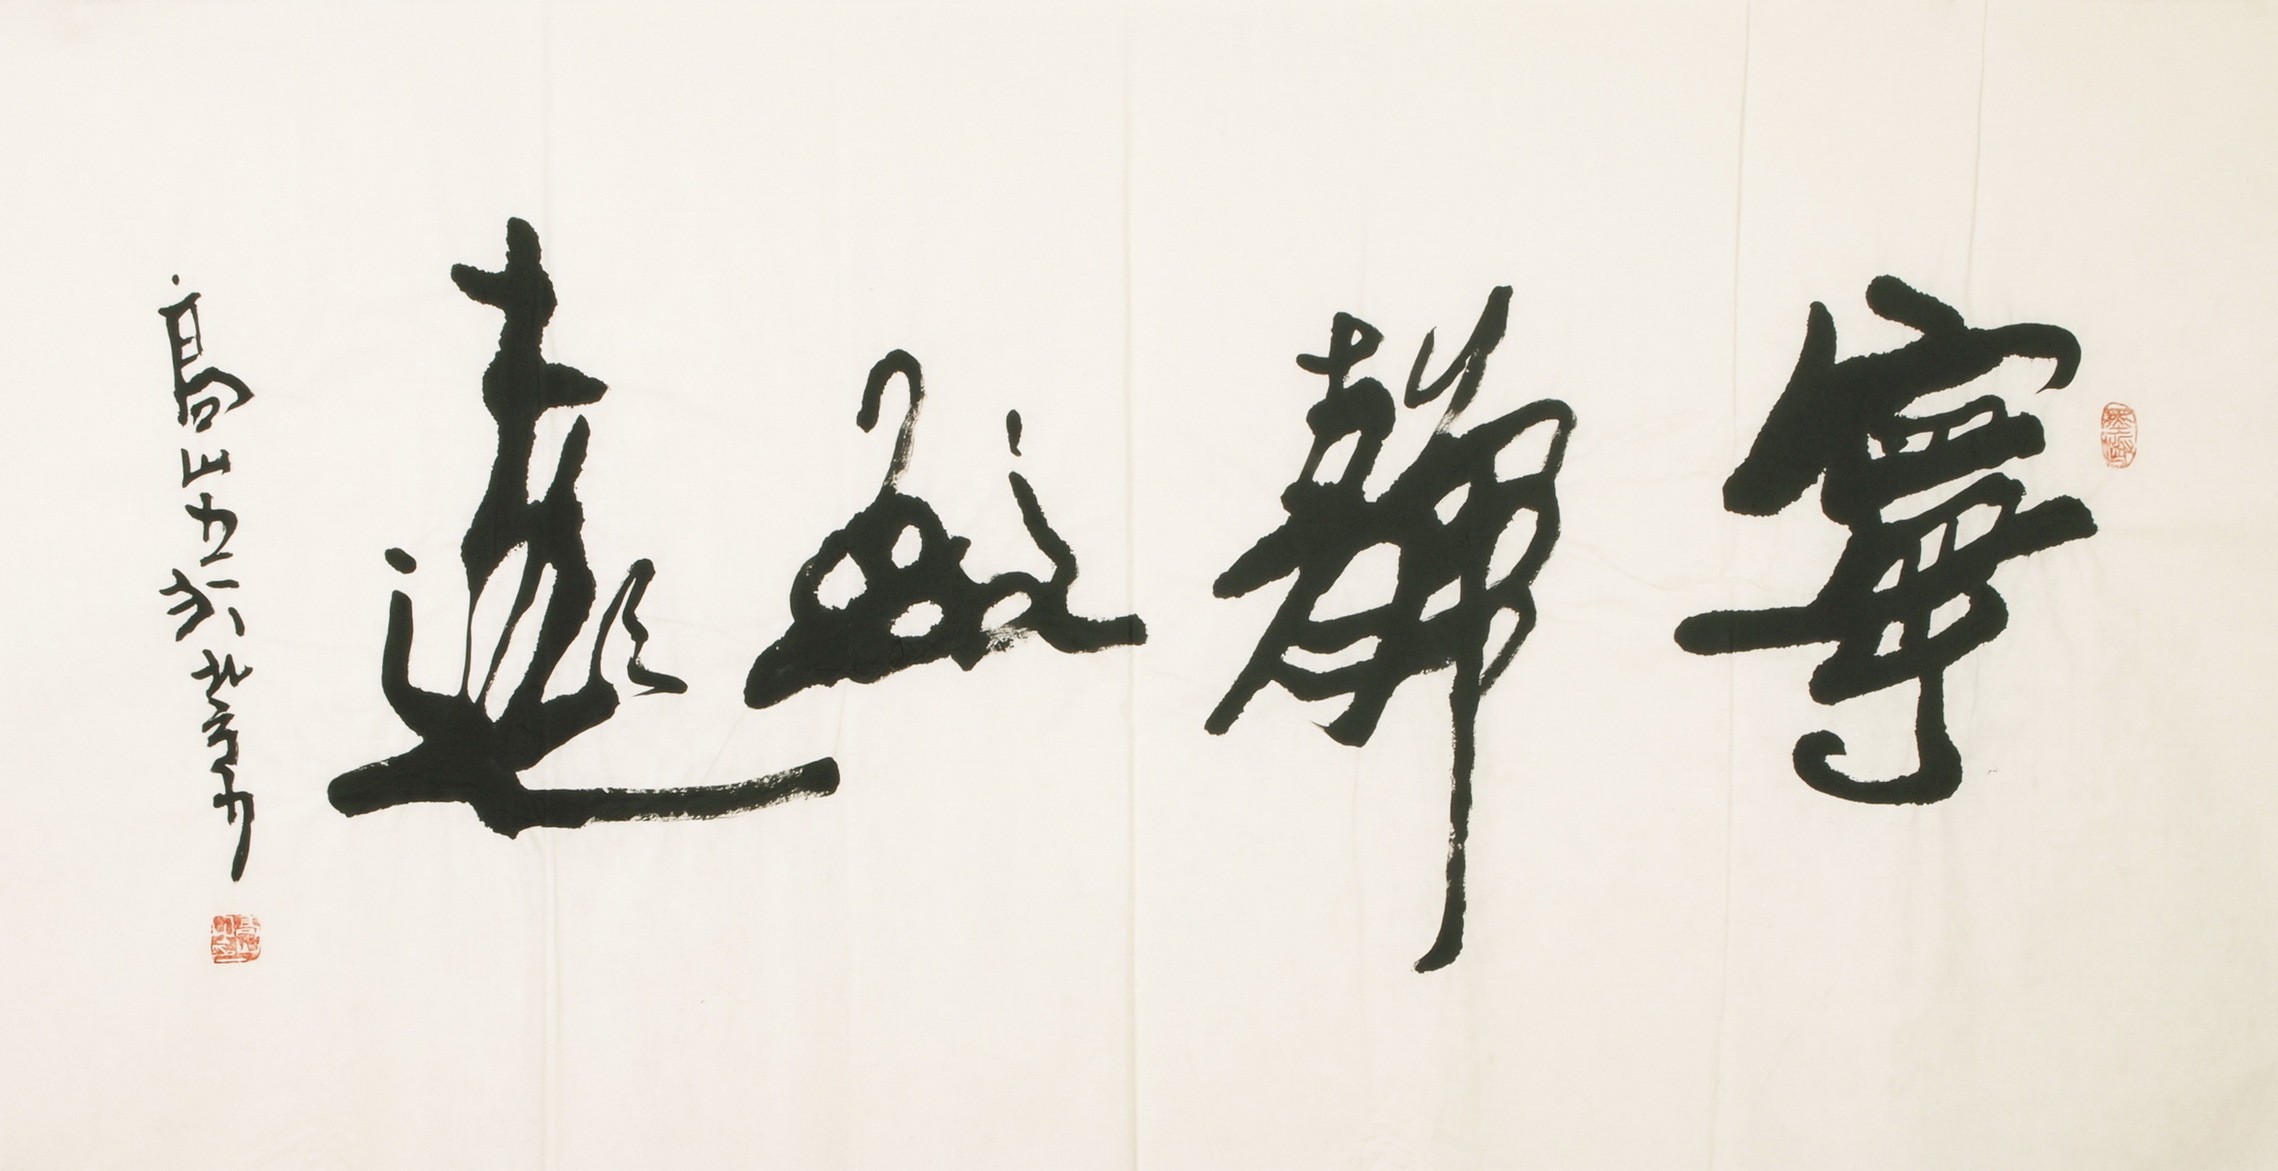 寧靜致遠
高山立於北京